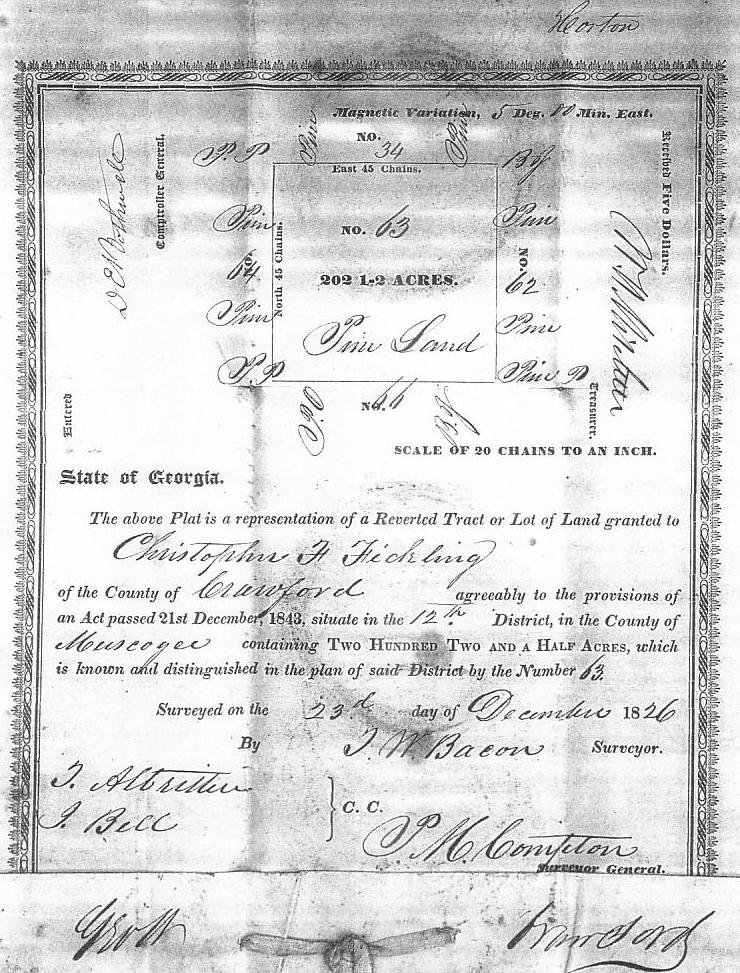 Horton
Magnetic Variation, 5 Deg. 00 Min. East.
NO. 34
P. P Pine Pine
East 45 Chains.
Comptroller General.
Received Five Dollars.
Pine NO. 63 Pine
NO. 64 North 45 Chains. NO. 62
202 1-2 ACRES.
Pine Pine
Pine Land
P. P Pine P
Entered No. 66 Treasurer.
SCALE OF 20 CHAINS TO AN INCH.
State of Georgia.
The above Plat is a representation of a Reverted Tract or Lot of Land granted to
Christopher F Fickling
of the County of Crawford agreeably to the provisions of
an Act passed 21st December, 1843, situate in the 12th District, in the County of
Muscogee containing TWO HUNDRED TWO AND A HALF ACRES, which
is known and distinguished in the plan of said District by the Number 63.
Surveyed on the 23d day of December 1826
By T. W. Bacon Surveyor.
T. Albritten
J. Bell
} C. C.
P. M. Compton
Surveyor General.
Geo W Crawford